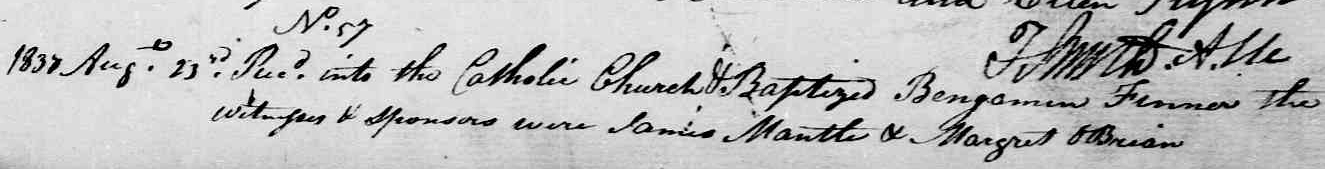 and Ellen Flynn
No. 57
T Smyth. A.
1837 Augt. 23rd. Recd. into the Catholic Church & Baptized Bengamin Finner the
witnesses & sponsors were James Mantle & Margret OBrian